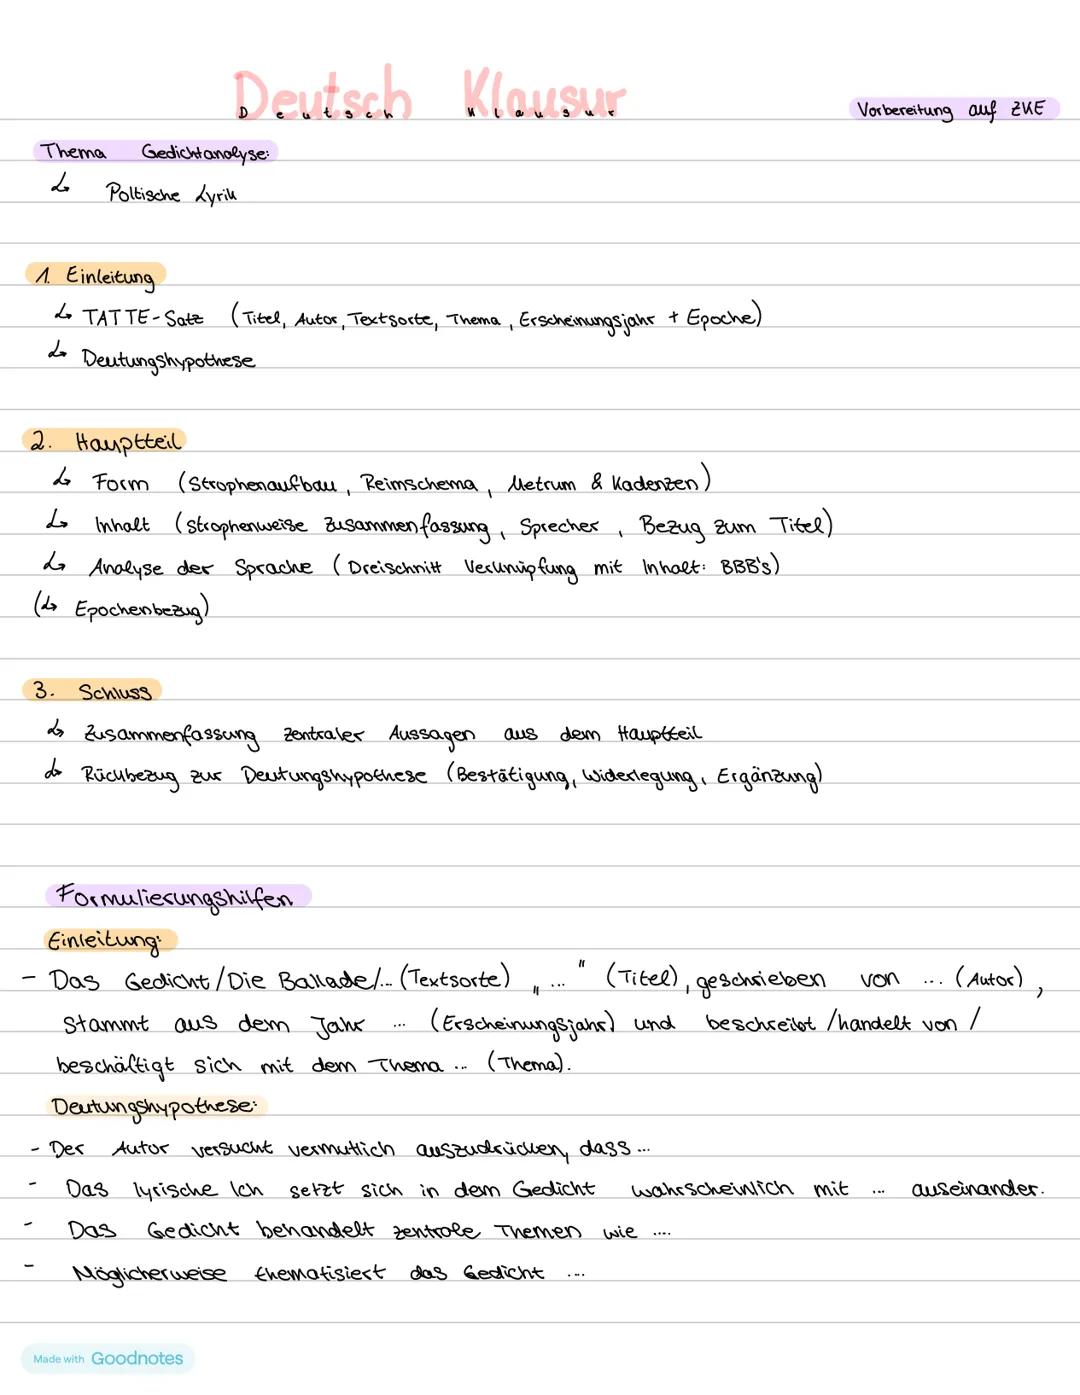 Deutsch Klausur
Deutsch Klausur
Vorbereitung auf ZKE
Thema Gedichtanalyse:
↳ Poltische Lyrik
1. Einleitung
↳ TATTE-Satz (Titel, Autor, Textsorte, Thema, Erscheinungsjahr + Epoche)
↳ Deutungshypothese
2. Hauptteil
↳ Form (Strophenaufbau, Reimschema, Metrum & Kadenzen)
↳ Inhalt (Strophenweise Zusammenfassung, Sprecher, Bezug zum Titel)
↳ Analyse der Sprache (Dreischnitt Verknüpfung mit Inhalt: BBB's)
(↳ Epochenbezug)
3. Schluss
↳ Zusammenfassung zentraler Aussagen aus dem Hauptteil
↳ Rückbezug zur Deutungshypothese (Bestätigung, Widerlegung, Ergänzung)
Formulierungshilfen
Einleitung:
- Das Gedicht/Die Ballade/... (Textsorte) „..." (Titel), geschrieben von ... (Autor),
stammt aus dem Jahr ... (Erscheinungsjahr) und beschreibt /handelt von /
beschäftigt sich mit dem Thema ... (Thema).
Deutungshypothese:
- Der Autor versucht vermutlich auszudrücken, dass ...
- Das lyrische Ich setzt sich in dem Gedicht wahrscheinlich mit ... auseinander.
- Das Gedicht behandelt zentrale Themen wie ....
- Möglicherweise thematisiert das Gedicht ....
Made with Goodnotes